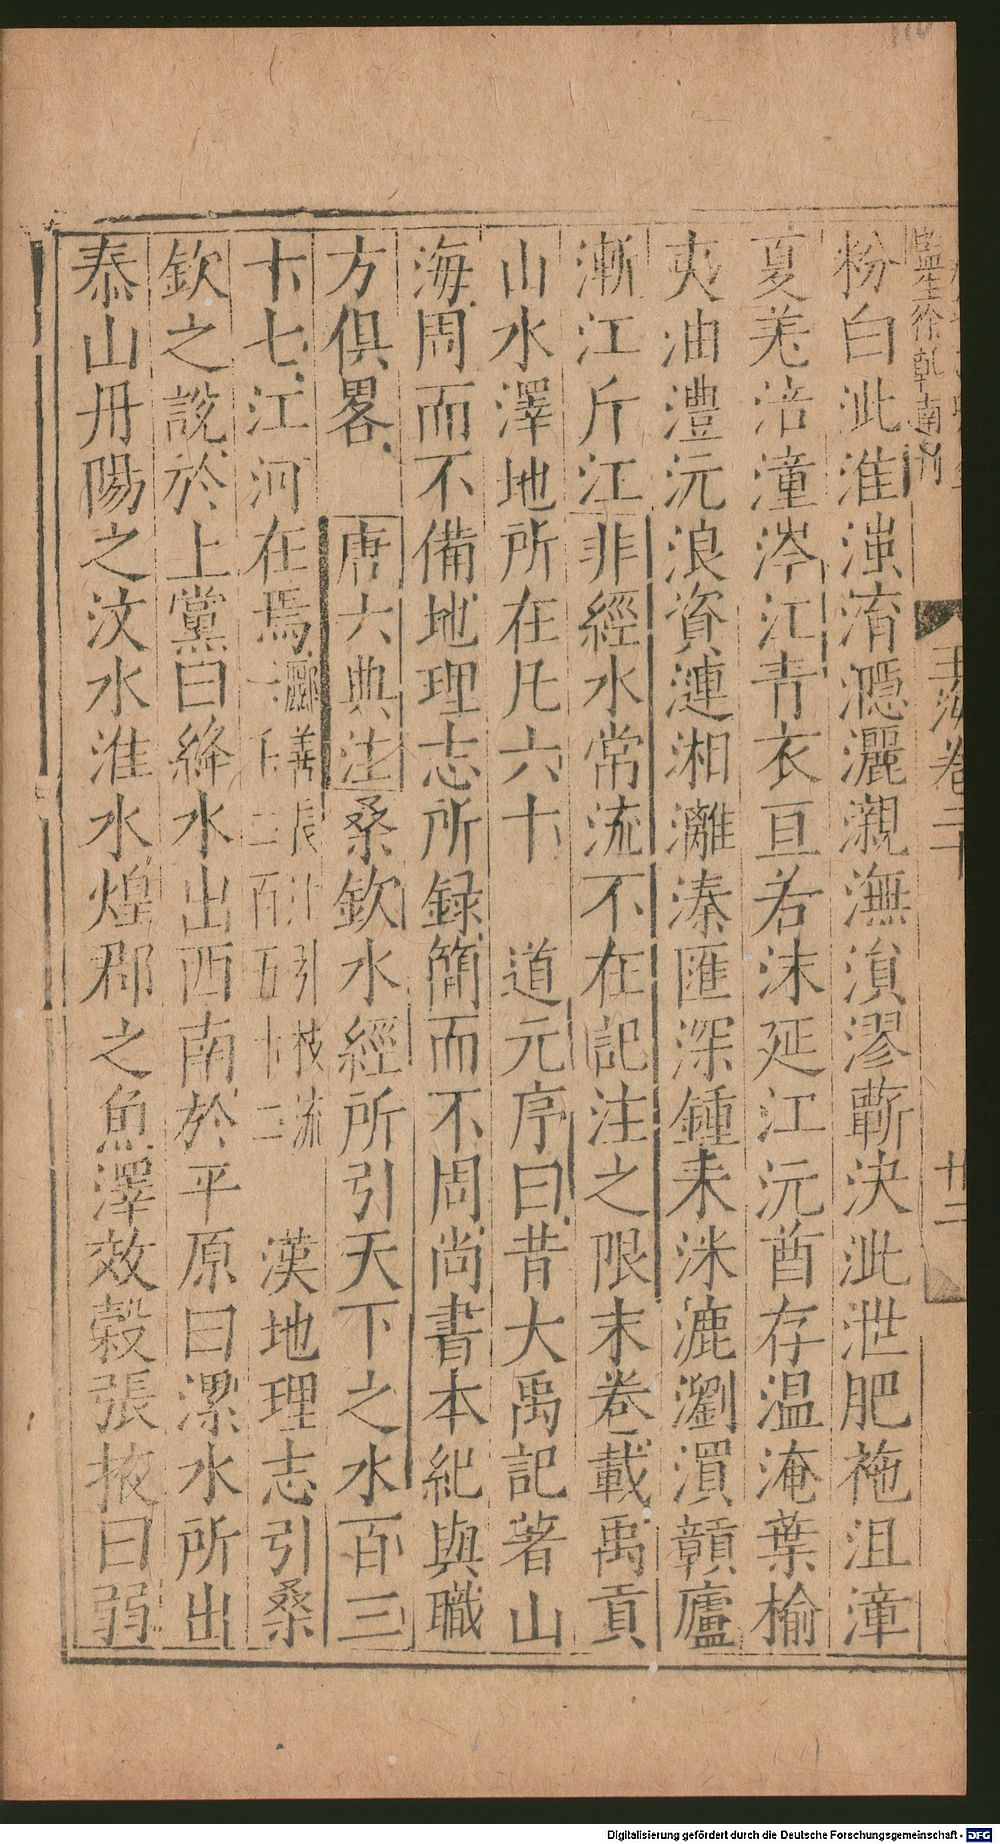 監生徐乾南刊
玉海卷二十
廿二
粉白泚淮滍淯㶏灈瀙潕溳漻蘄決泚泄肥袘沮漳
夏羌涪潼涔江青衣亘若沫延江沅酉存温淹葉榆
夷油澧沅浪資漣湘灕溱匯深鍾耒洣漉瀏㵋贑廬
漸江斤江非經水常流不在記注之限末卷載禹貢
山水澤地所在凡六十 道元序曰昔大禹記著山
海周而不備地理志所録簡而不周尚書本紀與職
方俱畧 唐六典注桑欽水經所引天下之水百三
十七江河在焉酈善長注引枝流一千二百五十二 漢地理志引桑
欽之說於上黨曰絳水出西南於平原曰漯水所出
泰山丹陽之汶水淮水煌郡之魚澤效穀張掖曰弱
Digitalisierung gefördert durch die Deutsche Forschungsgemeinschaft - DFG